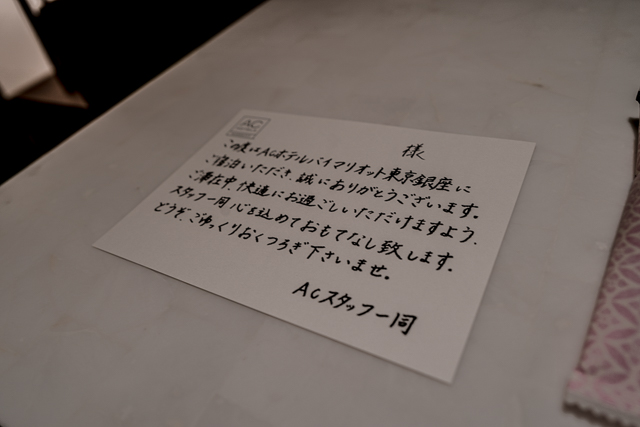 AC
様
この度はACホテルバイマリオット東京銀座に
ご宿泊いただき、誠にありがとうございます。
ご滞在中、快適にお過ごしいただけますよう、
スタッフ一同心を込めておもてなし致します。
どうぞ、ごゆっくりおくつろぎ下さいませ。
ACスタッフ一同